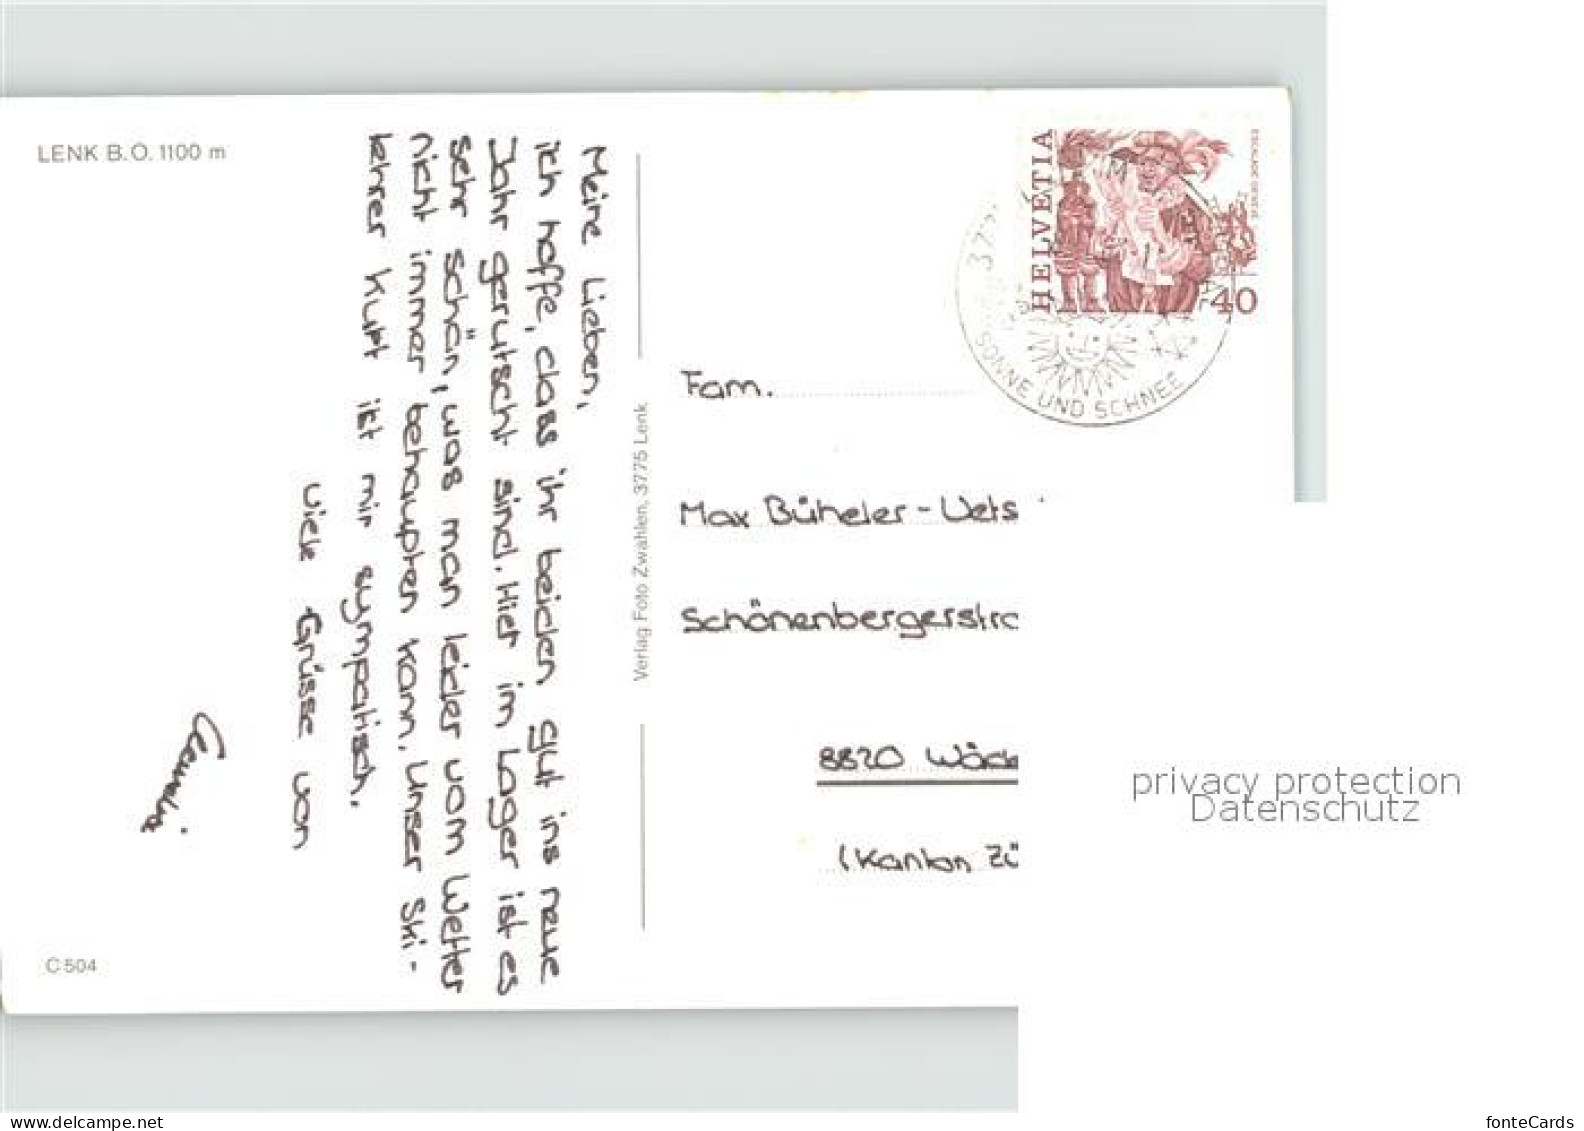 LENK B.O. 1100 m
Meine Lieben,
Ich hoffe, dass ihr beiden gut ins neue
Jahr gerutscht sind. Hier im Lager ist es
sehr schön, was man leider vom Wetter
nicht immer behaupten kann. Unser Ski-
lehrer Kurt ist mir sympatisch.
Viele Grüsse von
C 504
Verlag Foto Zwahlen, 3775 Lenk
HELVETIA
40
377
SONNE UND SCHNEE
Fam.
Max Büheler-Uets
Schönenbergerstra
8820 Wäde
(Kanton Zü
privacy protection
Datenschutz
www.delcampe.net
fonteCards